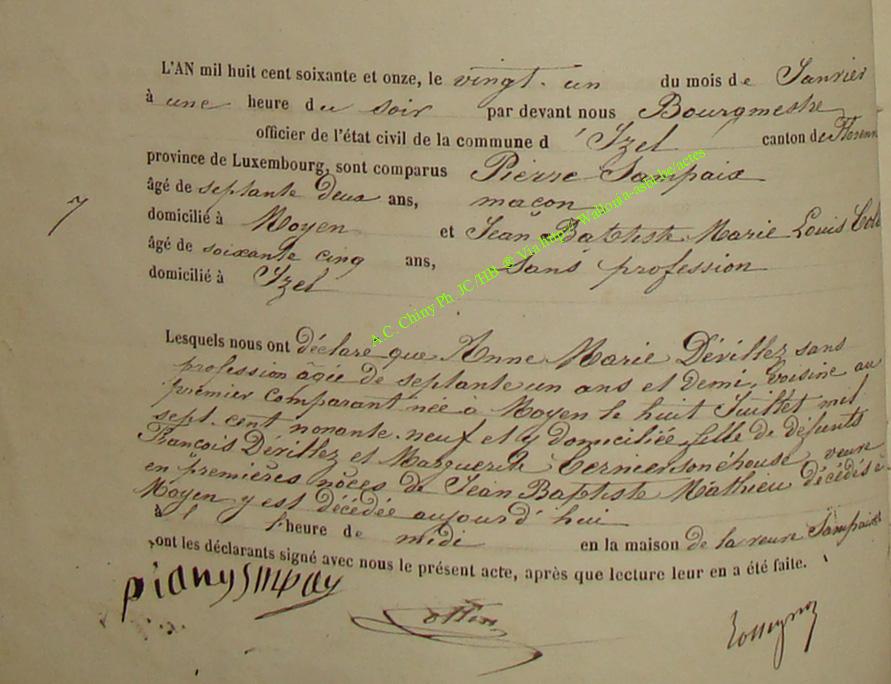 L'AN mil huit cent soixante et onze, le vingt-un du mois de Janvier
à une heure du soir par devant nous Bourgmestre
officier de l'état civil de la commune d'Izel canton de Floren
province de Luxembourg, sont comparus Pierre Sampaix
âgé de septante deux ans, maçon
domicilié à Moyen et Jean Baptiste Marie Louis
7
âgé de soixante cinq ans, Sans profession
domicilié à Izel
A.C. Chiny Ph. JC /HB @ Via http://Wallonia-asbl.be/actes
Lesquels nous ont déclaré que Anne Marie Dévillez sans
profession âgée de septante un ans et demi, voisine au
premier comparant née à Moyen le huit Juillet mil
sept-cent nonante-neuf et y domiciliée, fille de défunts
François Dévillez et Marguerite veuve
en premières nôces de Jean Baptiste Mathieu décédés à
Moyen y est décédée aujourd'hui
à l'heure de midi en la maison de la veuve Sampaix
ont les déclarants signé avec nous le présent acte, après que lecture leur en a été faite.